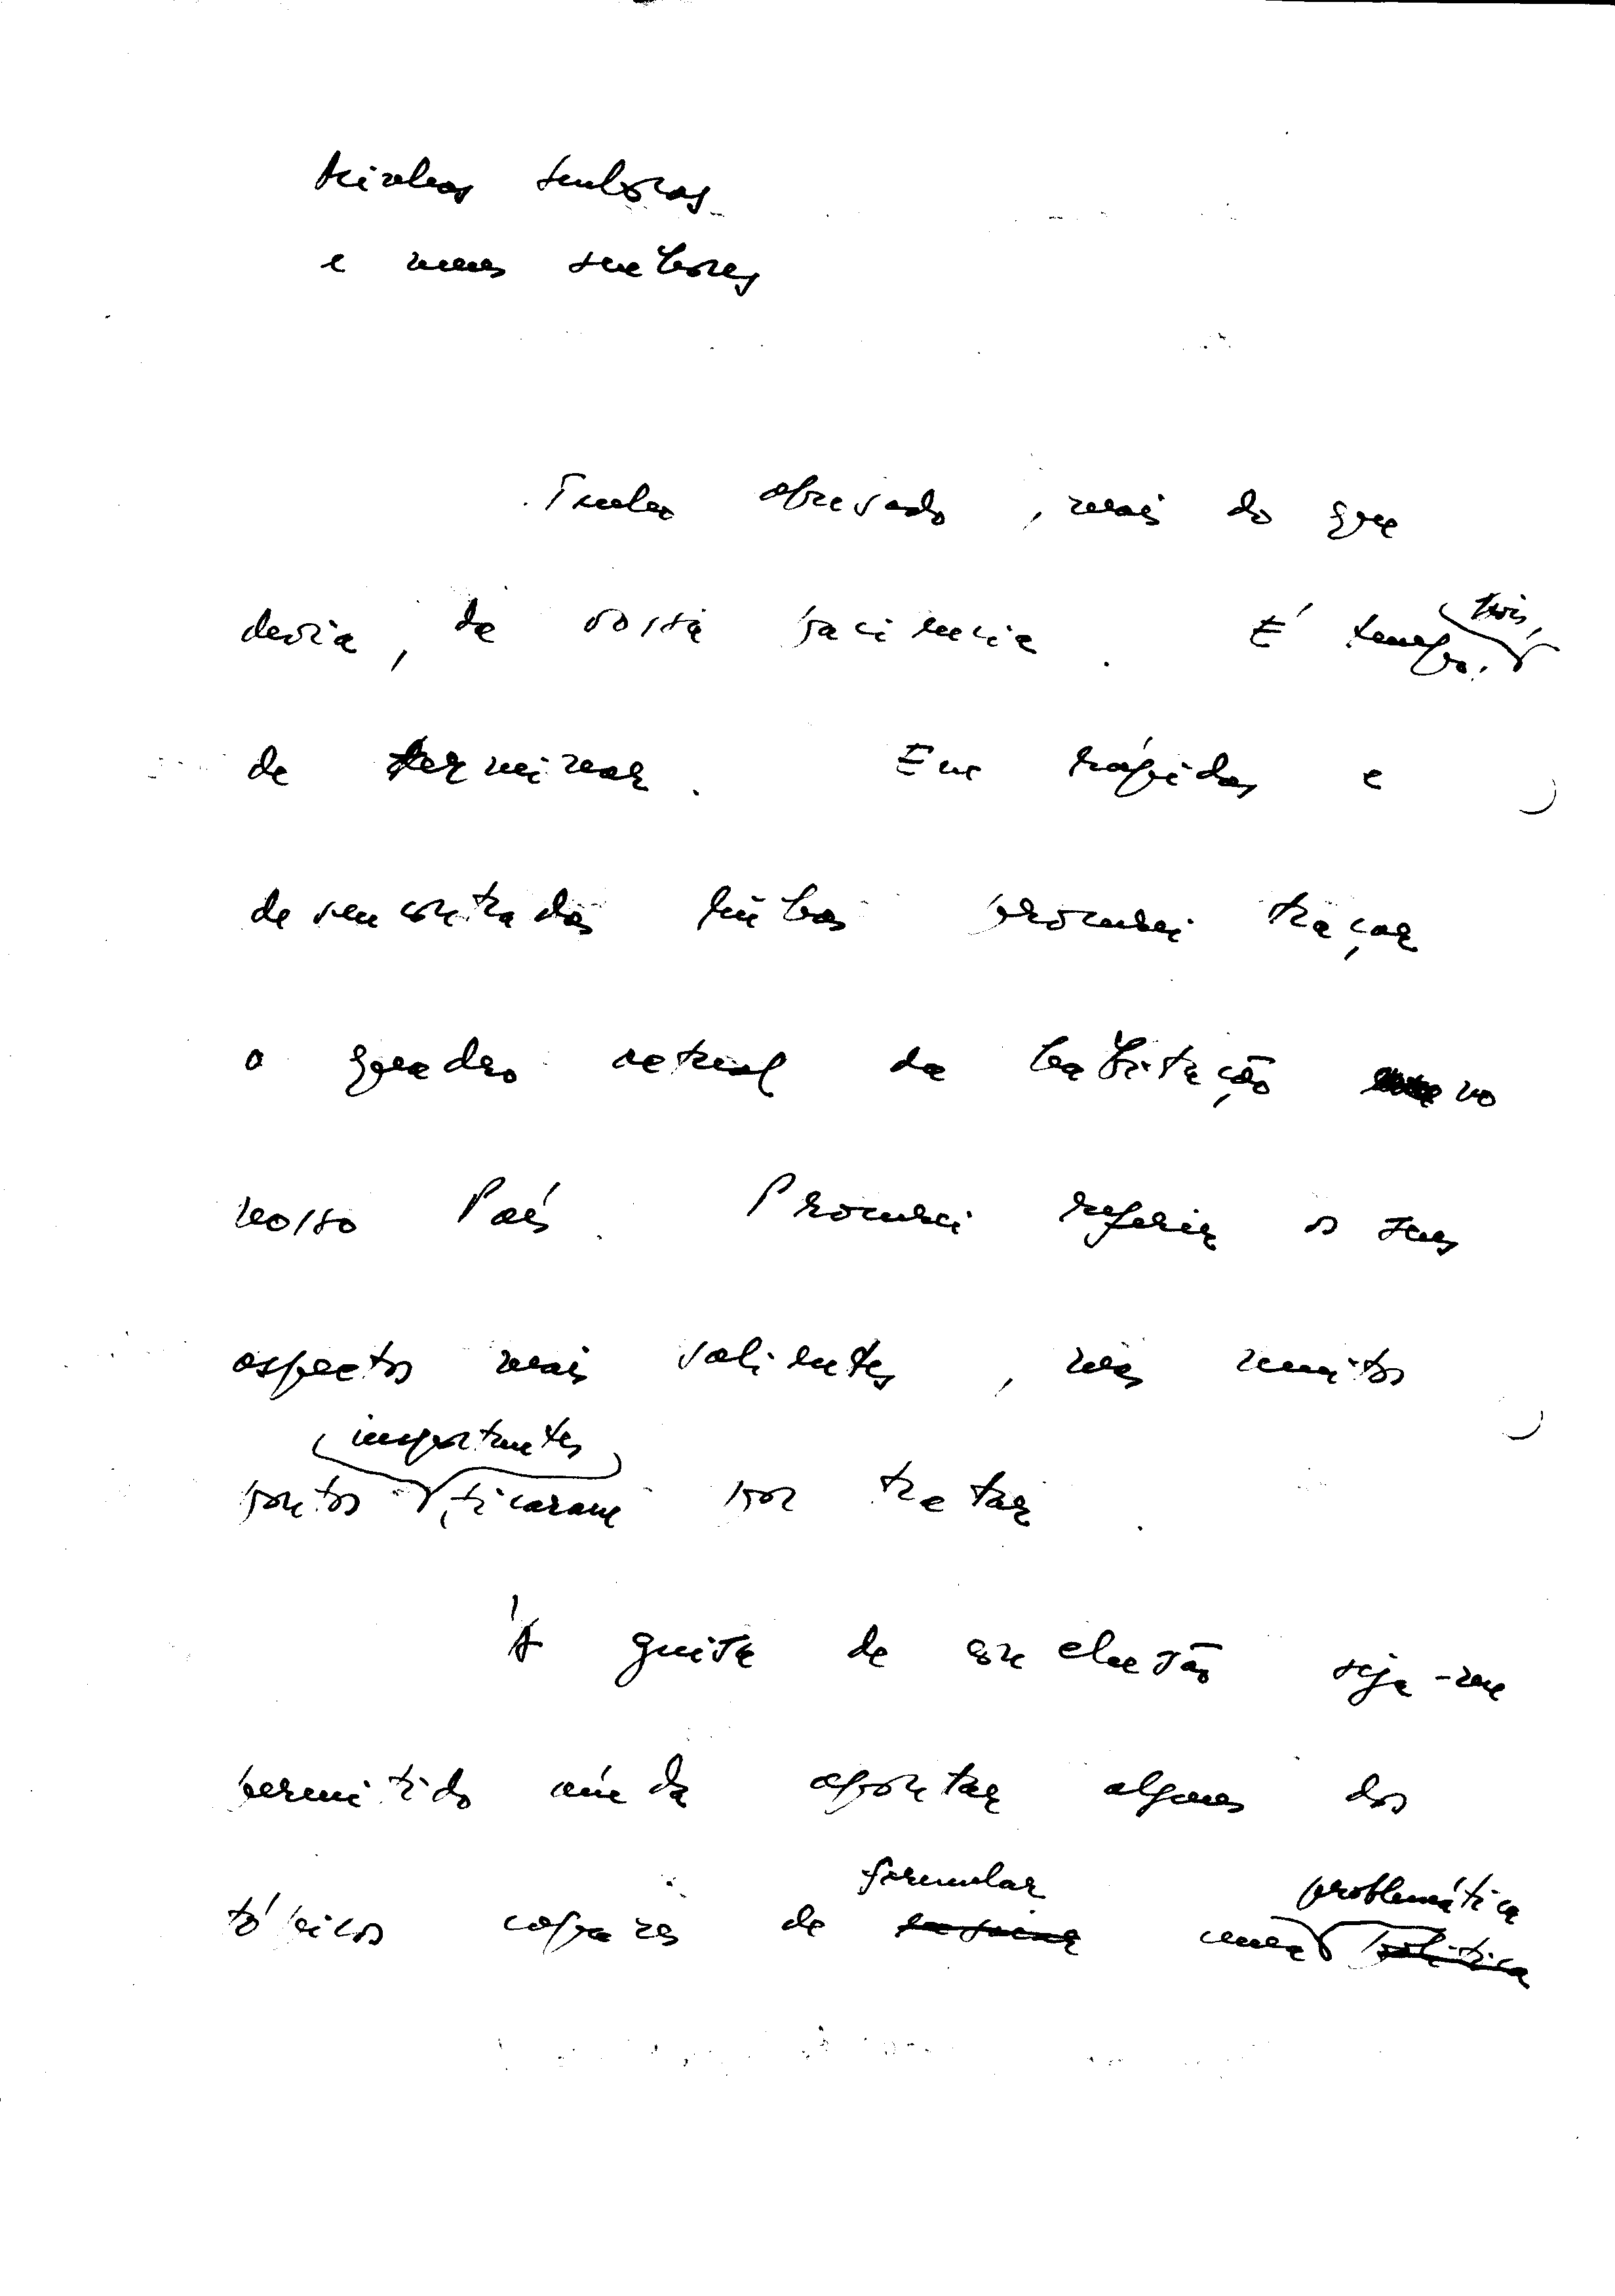 Minhas senhoras
e meus senhores
Tenho abusado, mais do que
devia, da vossa paciência. É tempo, pois,
de terminar. Em rápidas e
desencontradas linhas procurei traçar
o quadro actual da habitação no
nosso País. Procurei referir os seus
aspectos mais salientes, mas muitos
pontos importantes, ficaram por tratar.
À guisa de conclusão seja-me
permitido ainda apontar alguns dos
tópicos capazes de formular uma problemática política